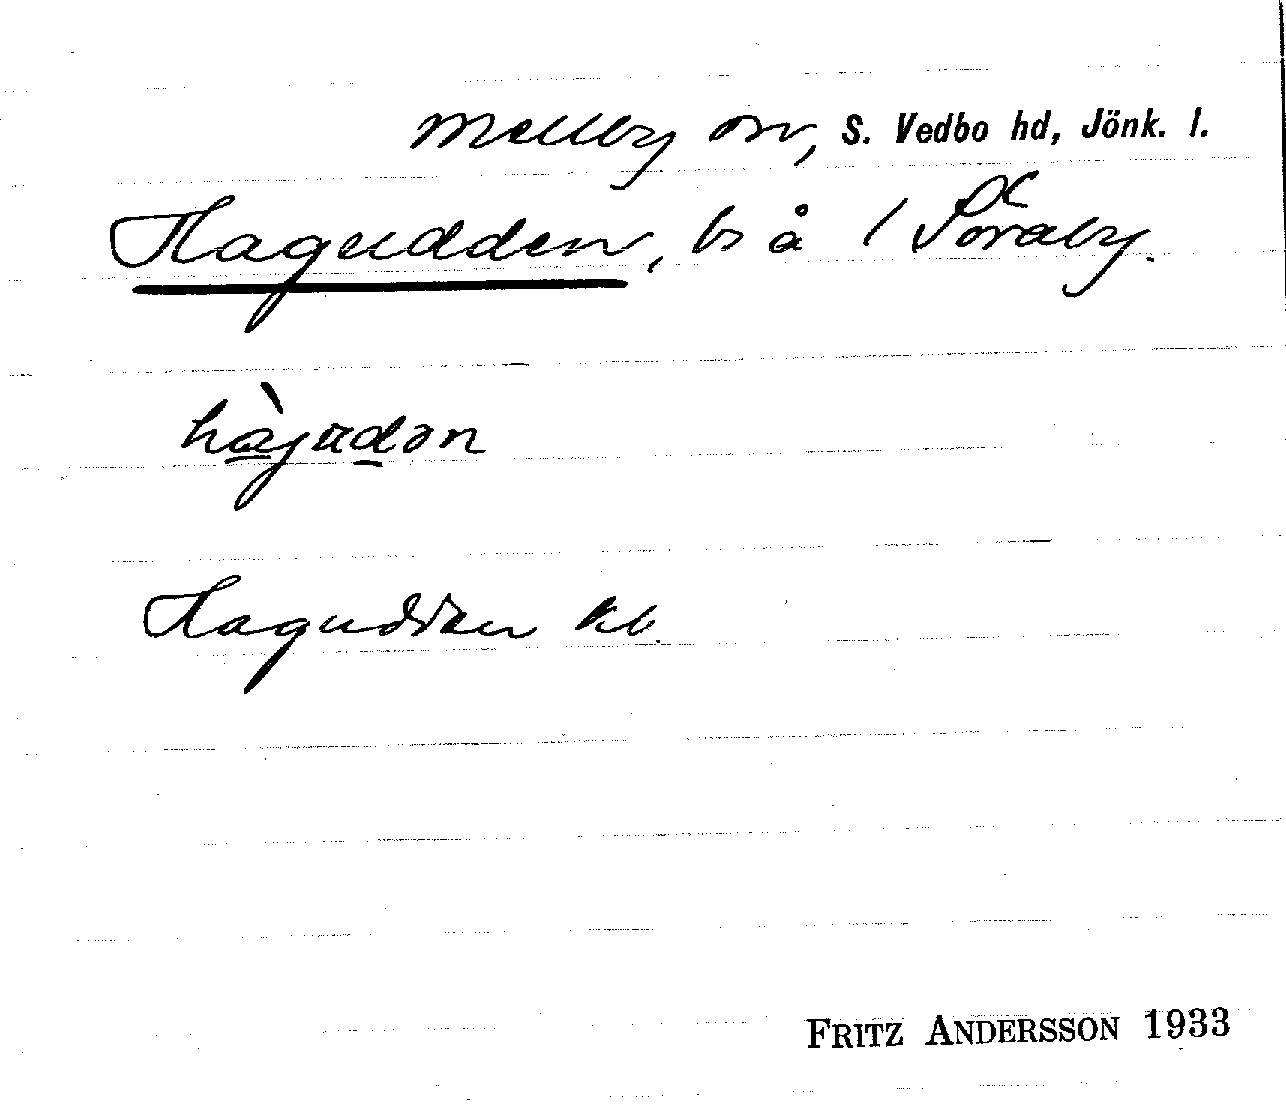 Mellby sn, S. Vedbo hd, Jönk. l.
Hagudden, bs å 1 Söraby.
hàgudən
Hagudden kb.
FRITZ ANDERSSON 1933